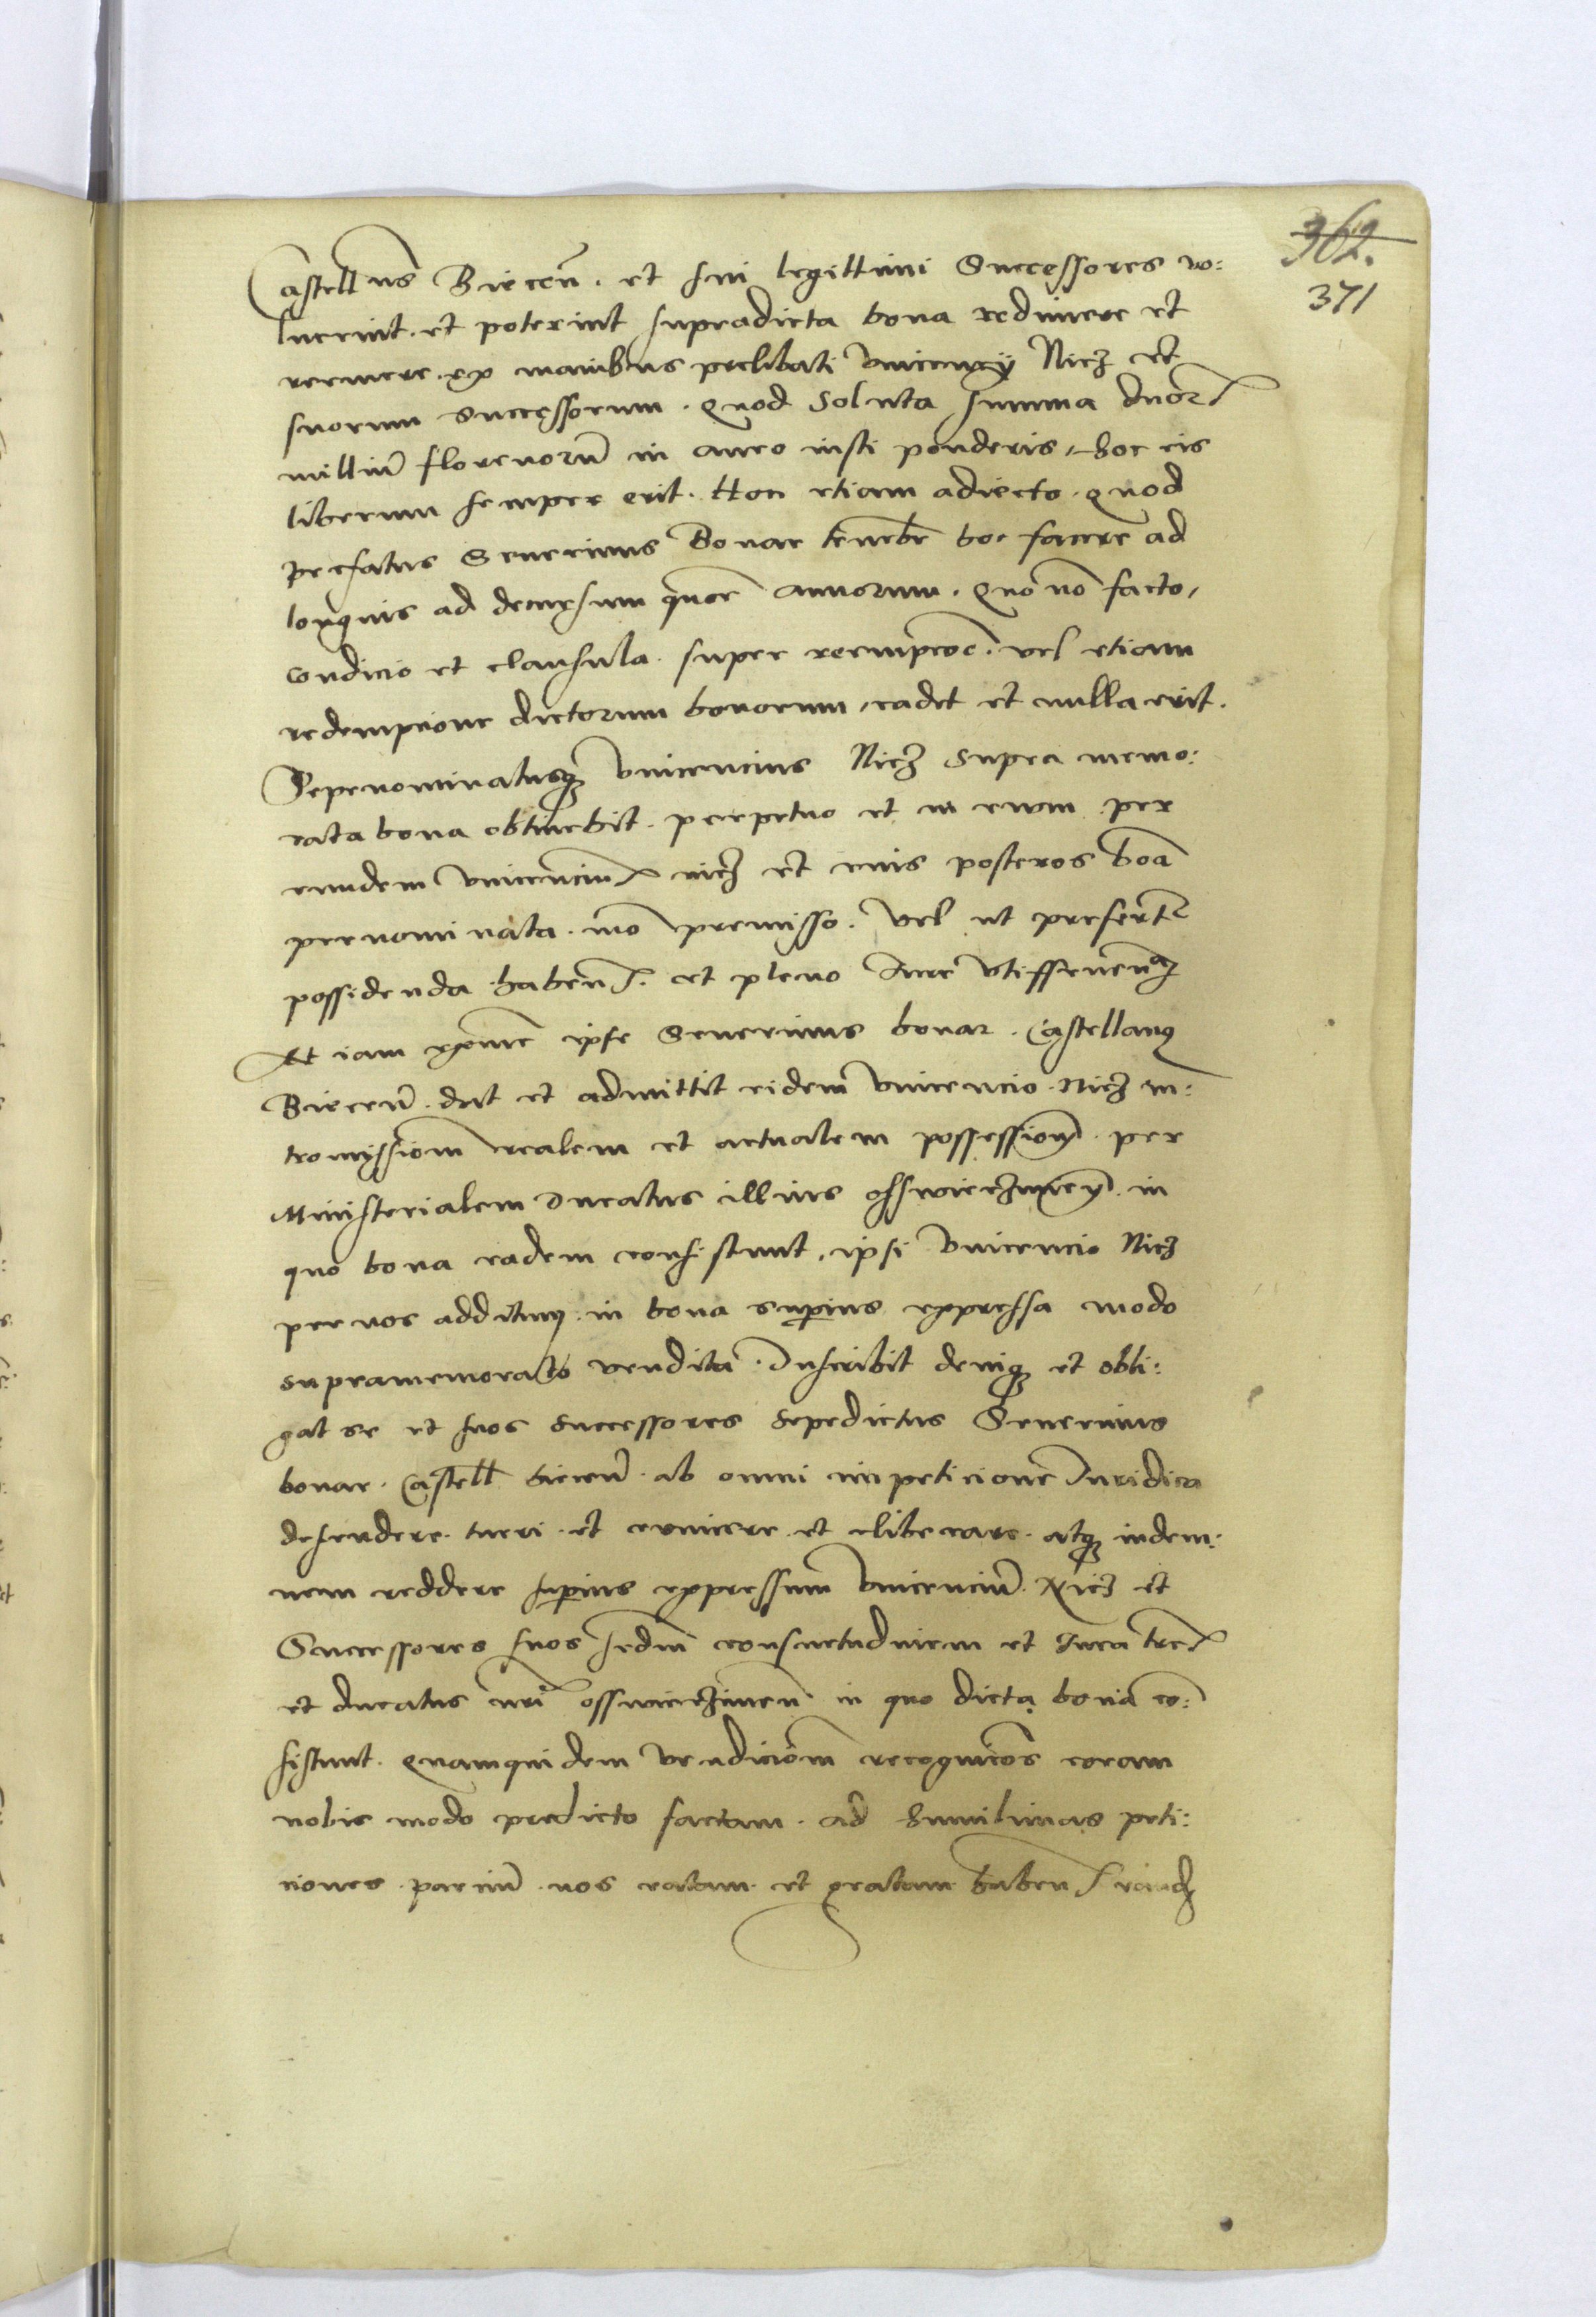 362.
371
Castell̄us Biecen̄. et sui legittimi Successores vo:
luerint. et poterint supradicta bona redimere et
reemere. ex manibus prelibati Vnicencÿ Niez et
suorum Successorum. Quod Soluta summa duor
milliū florenorū in auro iusti ponderis, hoc eis
liberum semper erit. Hoc etiam adiecto. quod
Prefatus Seuerinus Bonar tenebr̄ hoc facere ad
longius ad decursum quor̄ annorum. Quo nō facto,
condicio et clausula super reempcōe. vel etiam
redempcione dictorum bonorum, cadet et nulla erit.
Sepenominatusqꝫ Vnicencius Niez Supra memo:
rata bona obtinebit. perpetuo et in ewm per
eundem Vnicenciū niez et eius posteros boā
prenominata. mō premisso. Vel ut prefertr̄
possidenda haben. et pleno Jure vtifruenꝫ
Et iam exnūc ipse Seuerinus bonar. Castellanꝯ
Biecen̄. dat et admittit eidem Vnicencio. Niez in:
tromissiom̄ realem et actualem possessionem̄. per
Ministerialem Ducatus illius Osswieczimen̄. in
quo bona eadem consistunt, ipsi Vnicencio Niez
per nos additum. in bona superius expressa modo
supramemorato vendita. Inscribit deniqꝫ et obli:
gat se et suos Successores Sepedictus Seuerinus
bonar. Castell̄ biecen̄. ab omni impeticione Juridica
defendere. tueri. et euincere. et eliberare. atqꝫ indem:
nem reddere superius expressum Vnicenciū. Niez et
Successores suos secdm̄ consuetudinem et Jura trē
et ducatus nrī osswieczimen̄ in quo dicta bona cō:
sistunt. Quamquidem vendiciom̄ recognicōs̄ coram
nobis modo predicto factam. ad humilimas peti:
ciones parciū. nos ratam. et gratam haben eandꝫ